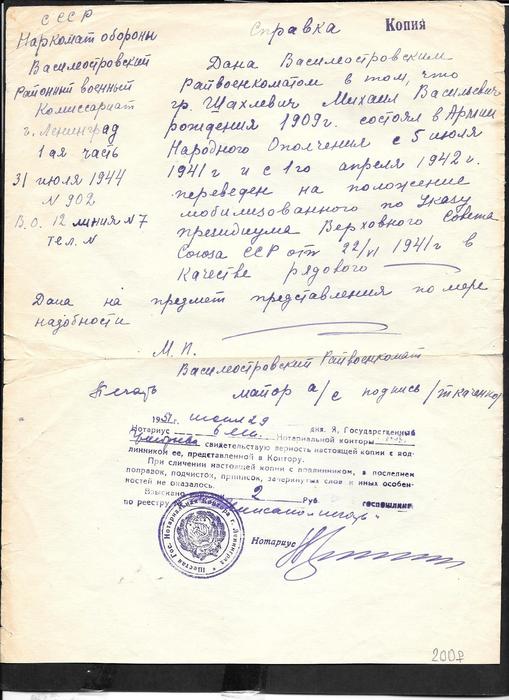 СССР
Наркомат обороны
Василеостровский
Районный военный
Комиссариат
г. Ленинград
1ая часть
31 июля 1944
N 902
В.О. 12 линия N 7
тел. N
Справка
Копия
Дана Василеостровским
Райвоенкоматом в том, что
гр. Шахлевич Михаил Васильевич
рождения 1909г. состоял в Армии
Народного Ополчения с 5 июля
1941г и с 1го апреля 1942г.
переведен на положение
мобилизованного по Указу
президиума Верховного Совета
Союза ССР от 22/VI 1941г в
качестве рядового
Дана на предмет представления по мере
надобности
М. П.
Василеостровский Райвоенкомат
Печать майор а/с подпись /Ткаченко/
1951 июня 29 дня. Я, Государственный
Нотариус 6 Нотариальной конторы
свидетельствую верность настоящей копии с под-
линником ее, представленной в Контору.
При сличении настоящей копии с подлинником, в последнем
поправок, подчисток, приписок, зачеркнутых слов и иных особен-
ностей не оказалось.
Взыскано 2 Руб. госпошлины
по реестру
Шестая Гос. Нотариальная Контора г. Ленинград
Нотариус
200р